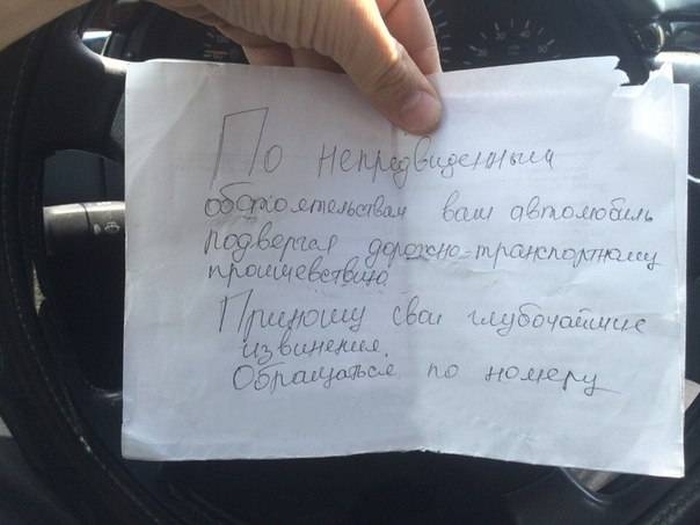 По непредвиденным
обстоятельствам ваш автомобиль
подвергся дорожно-транспортному
происшевствию.
Приношу свои глубочайшие
извинения.
Обращаться по номеру